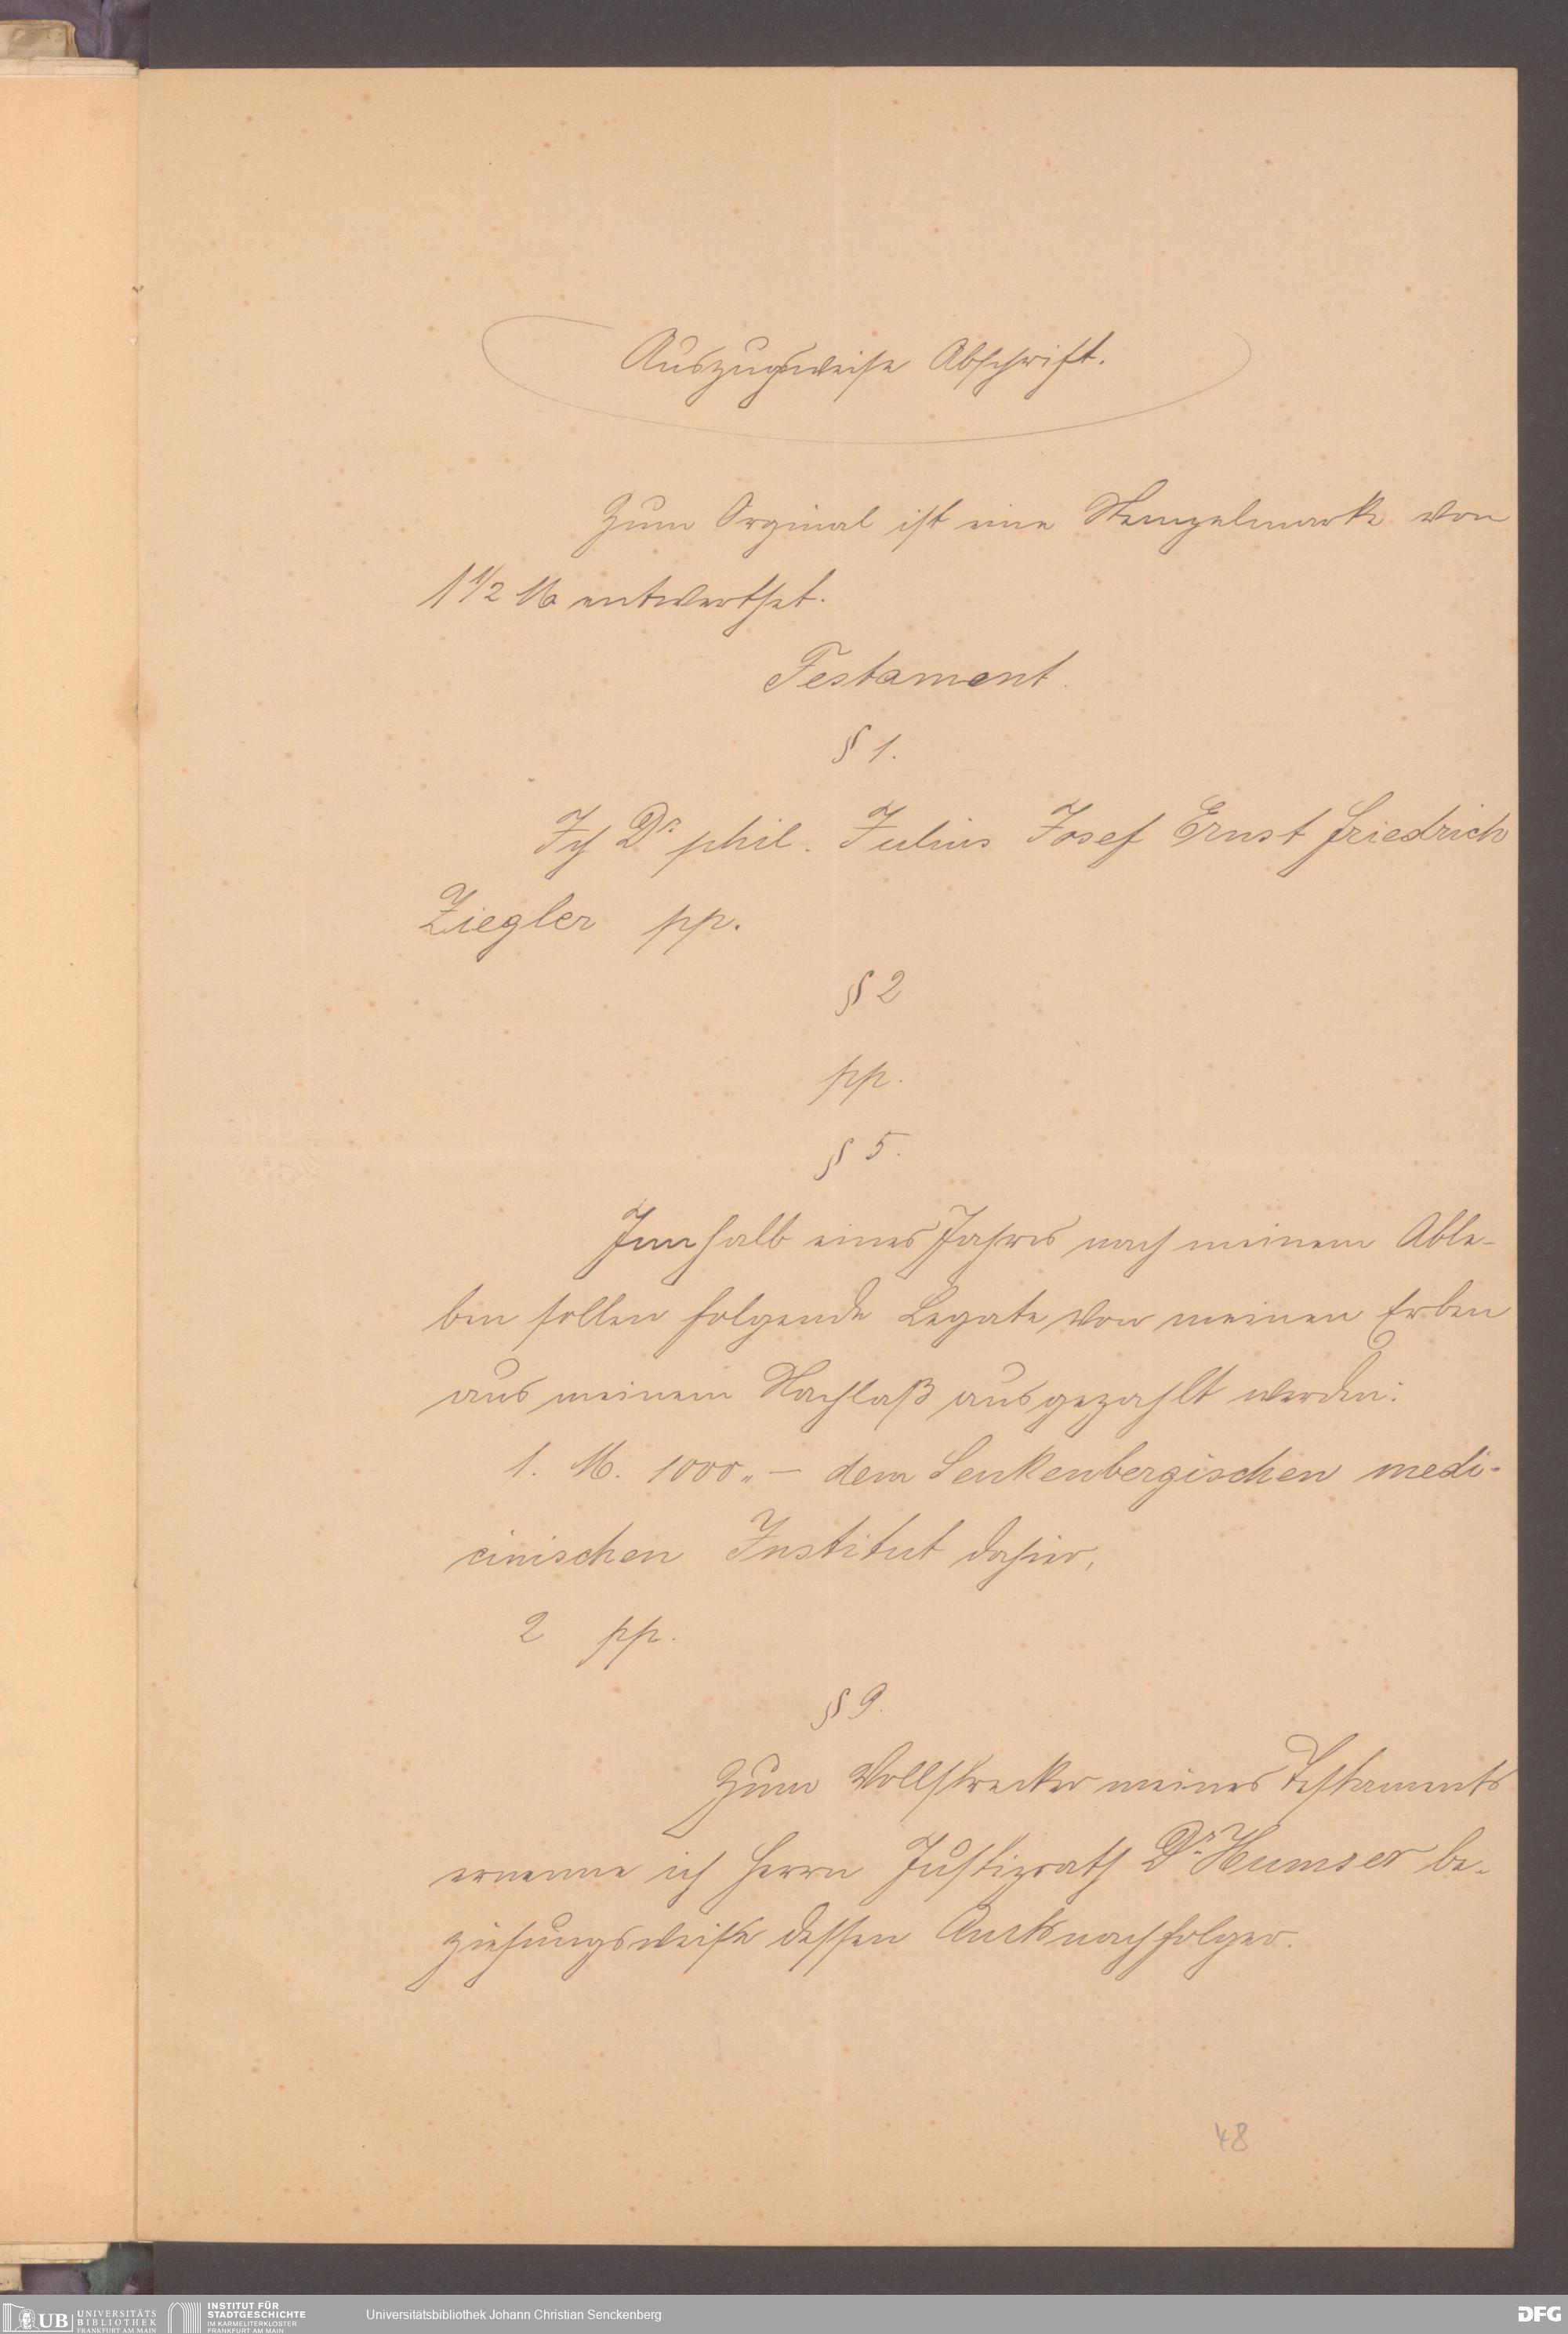 Auszugsweise Abschrift.
Zum Orginal ist eine Stempelmarke von
1 1/2 M entwerthet.
Testament.
§ 1.
Ich Dr phil. Julius Josef Ernst Friedrich
Ziegler pp.
§ 2
pp.
§ 5.
Innhalb eines Jahres nach meinem Able-
ben sollen folgende Legate von meinen Erben
aus meinem Nachlaß ausgezahlt werden:
1. M. 1000„ – dem Senkenbergischen medi-
cinischen Institut dahier,
2 pp.
§ 9.
Zum Vollstrecker meines Testaments
ernenne ich Herrn Justizrath Dr. Humser be-
ziehungsweise dessen Amtsnachfolger.
48
UB UNIVERSITÄTS
BIBLIOTHEK
FRANKFURT AM MAIN
INSTITUT FÜR
STADTGESCHICHTE
IM KARMELITERKLOSTER
FRANKFURT AM MAIN
Universitätsbibliothek Johann Christian Senckenberg
DFG